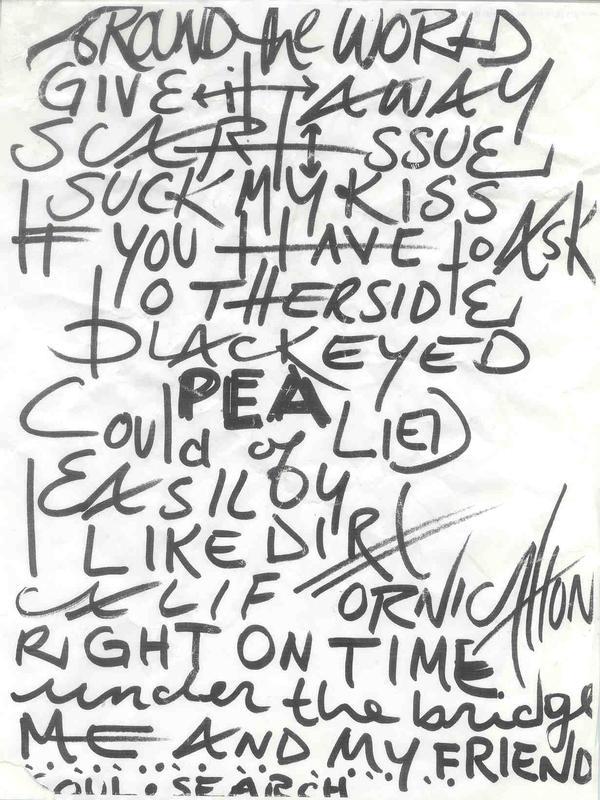 AROUND the WORLD
GIVE it AWAY
SCAR TISSUE
SUCK MY KISS
IF YOU HAVE to ASK
OTHERSIDE
BLACKEYED
PEA
Could of LIED
EASILY
I LIKE DIRT
CALIFORNICATION
RIGHT ON TIME
under the bridge
ME AND MY FRIEND
SOUL . SEARCH